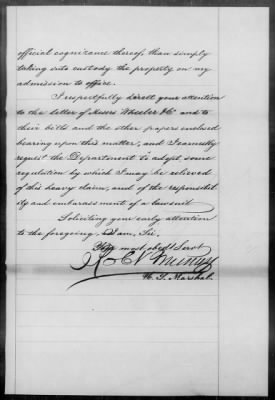 official cognizance thereof, than simply
taking into custody the property on my
admission to office.
I respectfully direct your attention
to the letter of Messrs Wheeler & Co and to
their bills and the other papers enclosed
bearing upon this matter, and I earnestly
request the Department to adopt some
regulation by which I may be relieved
of this heavy claim, and of the responsibil-
ity and embarassment of a lawsuit
Soliciting your early attention
to the foregoing. I am, Sir.
Your most obedt Servt
Murray
U. S. Marshal.